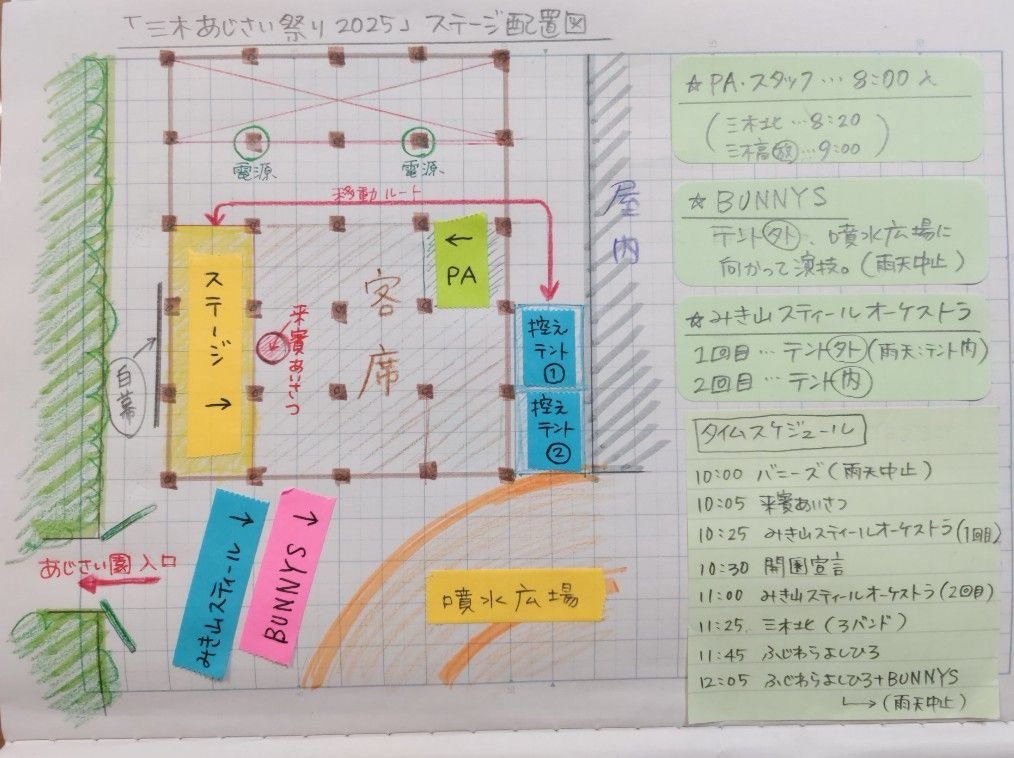 「三木あじさい祭り2025」ステージ配置図
電源
電源
移動ルート
屋内
ステージ
→
来賓あいさつ
客席
←
PA
控え
テント
①
控え
テント
②
白幕
あじさい園入口
みき山スティール→
BUNNYS→
噴水広場
☆PA・スタッフ…8:00入
(三木北…8:20
三木高…9:00)
☆BUNNYS
テント外、噴水広場に
向かって演技。(雨天中止)
☆みき山スティールオーケストラ
1回目…テント外(雨天:テント内)
2回目…テント内
タイムスケジュール
10:00 バニーズ(雨天中止)
10:05 来賓あいさつ
10:25 みき山スティールオーケストラ(1回目)
10:30 開園宣言
11:00 みき山スティールオーケストラ(2回目)
11:25 三木北(3バンド)
11:45 ふじわらよしひろ
12:05 ふじわらよしひろ+BUNNYS
→(雨天中止)